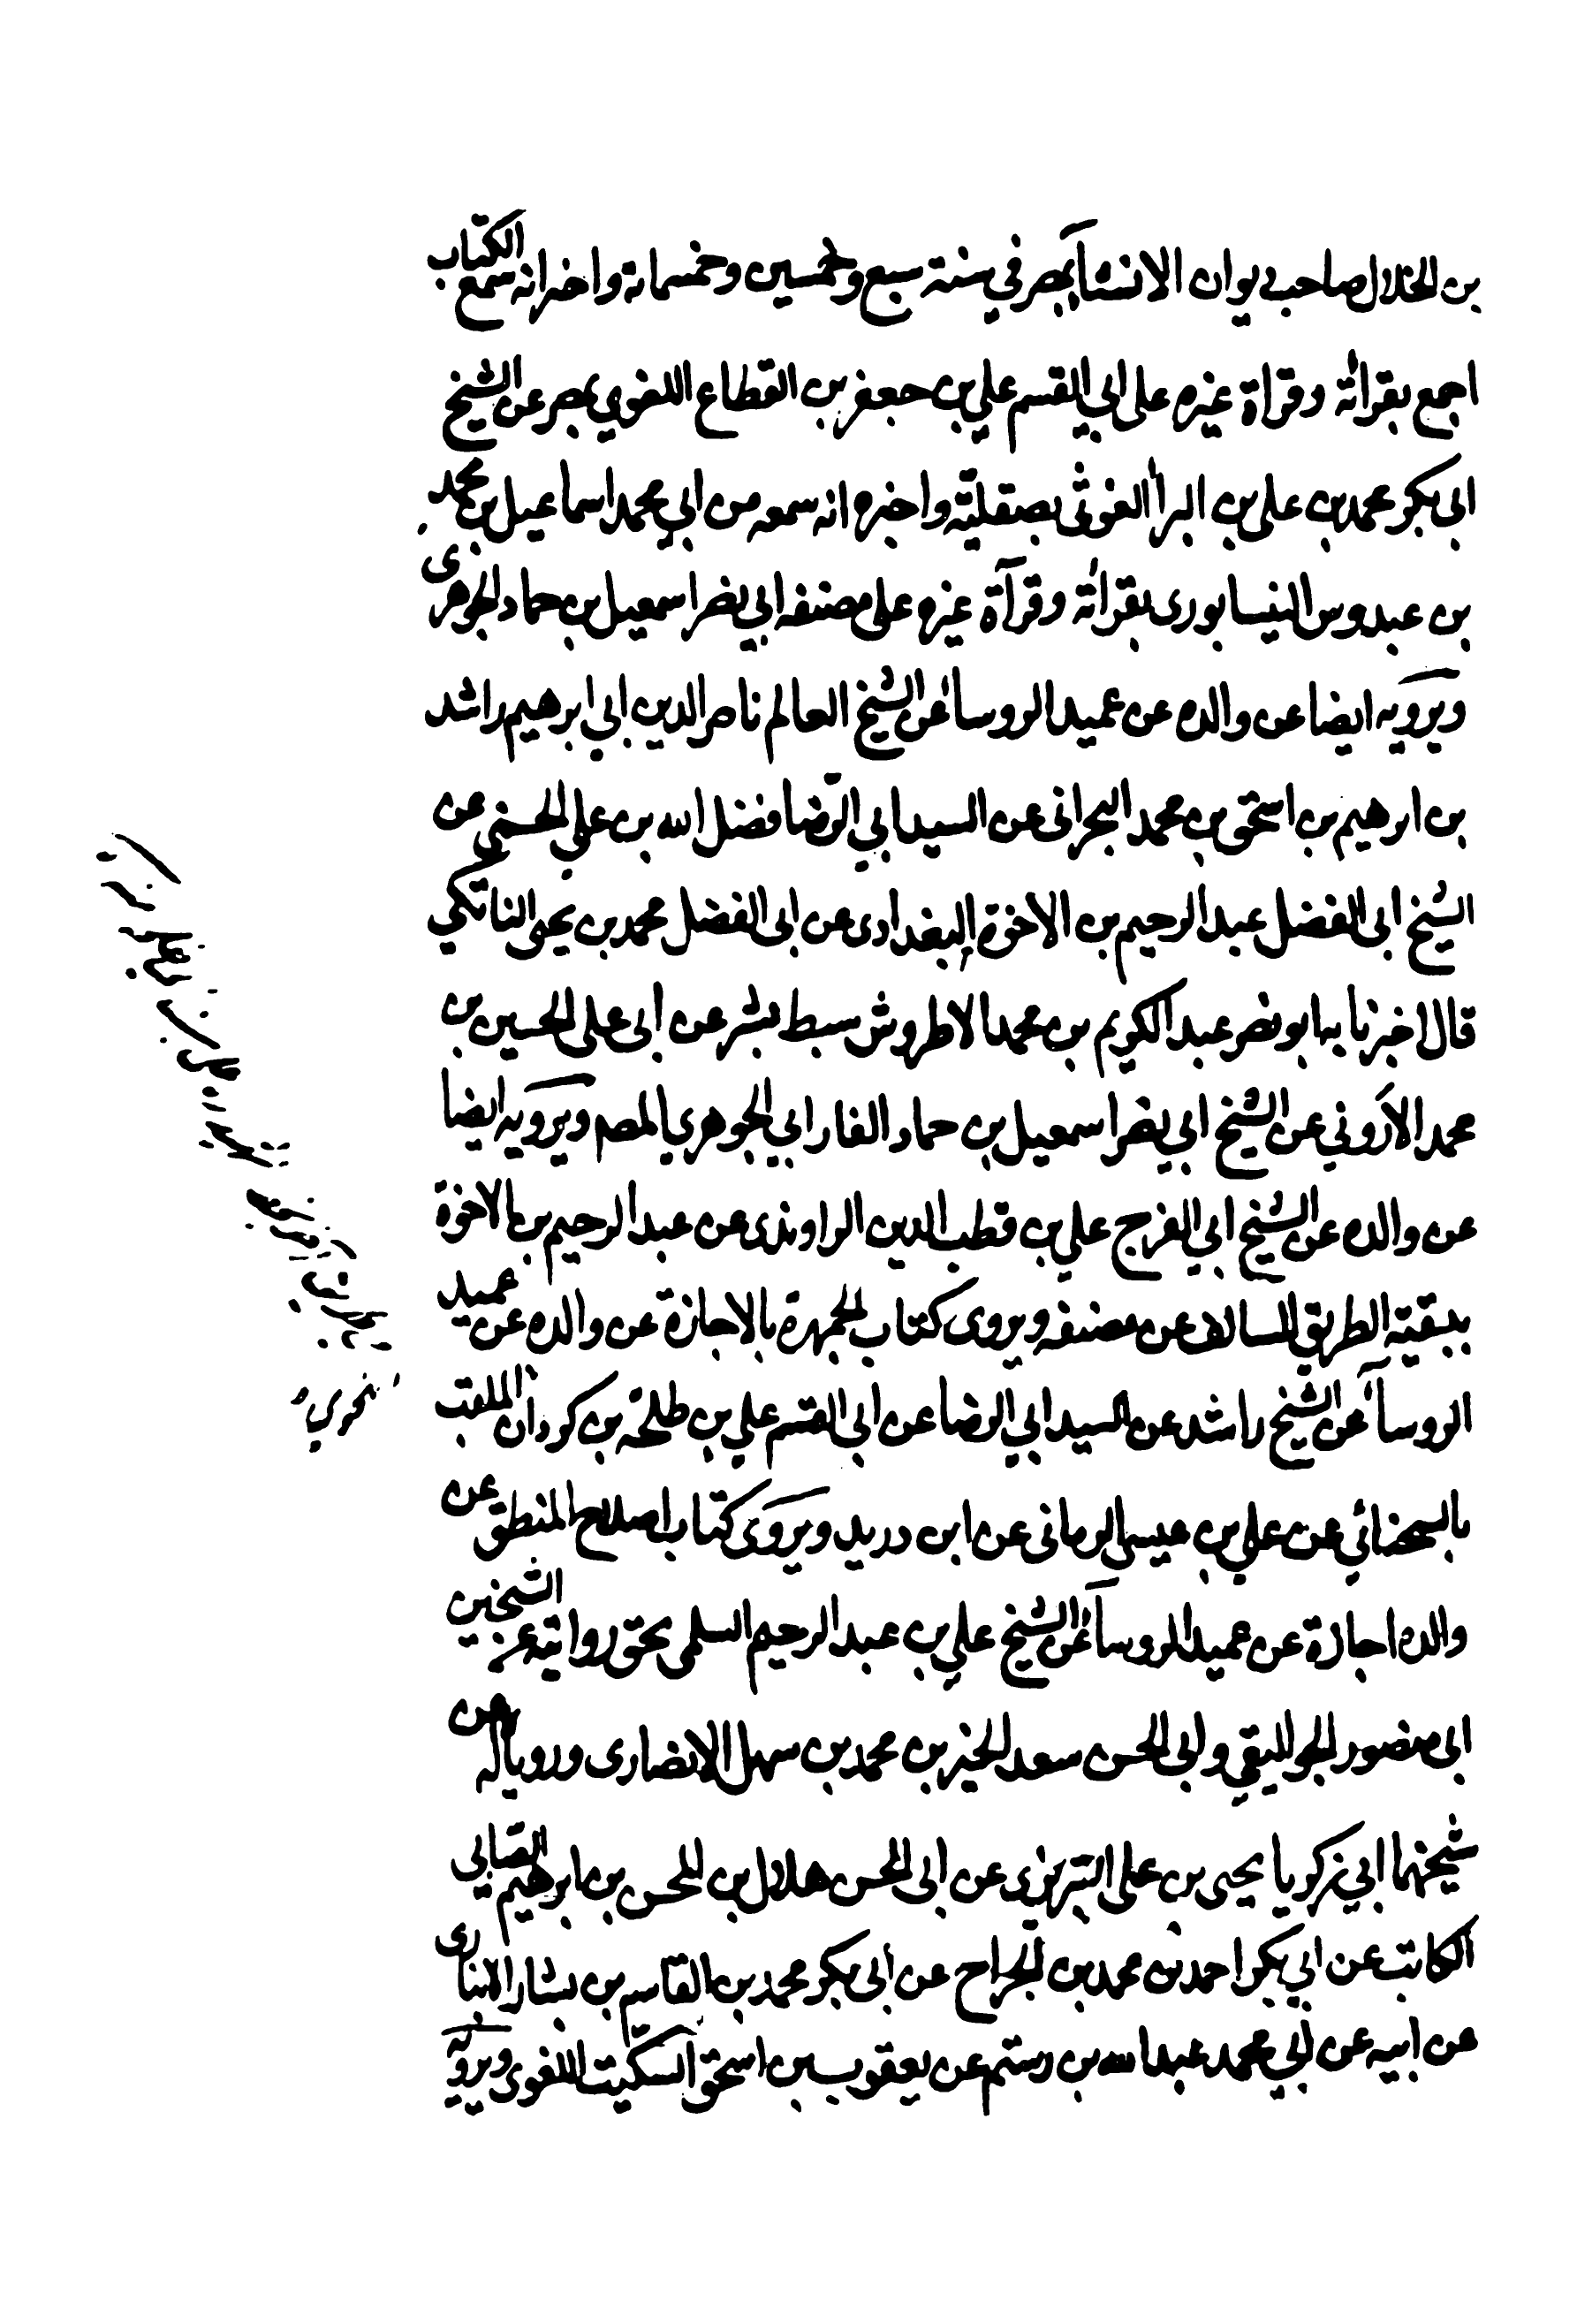 بن الخلال صاحب ديوان الانشآ بمصر في سنة سبع وخمسين وخمسمائة واخبرانه سمع الكتاب
اجمع بقراته وقراة غيره على ابي القسم علي بن جعفر بن القطاع اللغوي بمصر عن الشيخ
ابي بكر محمد بن علي بن البرا الغوثى بصقلية واخبره انه سمعه من ابي محمد اسماعيل بن محمد
بن عبدوس النيسابورى بقراته وقرآة غيره على مصنفه ابي نصر اسمعيل بن حماد الجوهرى
ويرويه ايضا عن والده عن عميد الروسا عن الشيخ العالم ناصر الدين ابي ابرهيم راشد
بن ابرهيم بن اسحق بن محمد البحرانى عن السيد ابي الرضا فضل الله بن علي الحسنى عن
الشيخ ابى الفضل عبد الرحيم بن الاخوة البغدادى عن ابى الفضل محمد بن يحيى الناتكي
قال اخبرنا بها ابو نصر عبد الكريم بن محمد الاطروش سبط بشر عن ابى على الحسين بن
محمد الاروني عن الشيخ ابي نصر اسمعيل بن حماد الفارابي الجوهري المصـ ويرويه ايضا
عن والده عن الشيخ ابي الفرج علي بن قطب الدين الراوندى عن عبد الرحيم بن الاخوة
ببقية الطريق السالف عن مصنفه ويروى كتاب الجمهرة بالاجازة عن والده عن عميد
الروسآ عن الشيخ راشد عن السيد ابي الرضا عن ابى القسم علي بن طلحة بن كردان الملقب
بالسحنائي عن علي بن عيسى الرمانى عن ابن دريد ويروى كتاب اصلاح المنطق عن
والده اجازة عن عميد الروسآ عن الشيخ علي بن عبد الرحيم السلمى بحق روايته عن الشيخين
ابى منصور الجواليقي وابى الحسن سعد الخير بن محمد بن سهل الانصارى وروياه عن
شيخهما ابي زكريا يحيى بن على التبريزى عن ابى الحسن هلال بن المحسن بن ابرهيم الصابى
الكاتب عن ابي بكر احمد بن محمد بن الجراح عن ابى بكر محمد بن القاسم بن بشار الانبارى
عن ابيه عن ابي محمد عبد الله بن رستم عن يعقوب بن اسحق السكيت اللغوى ويرويه
نحوي